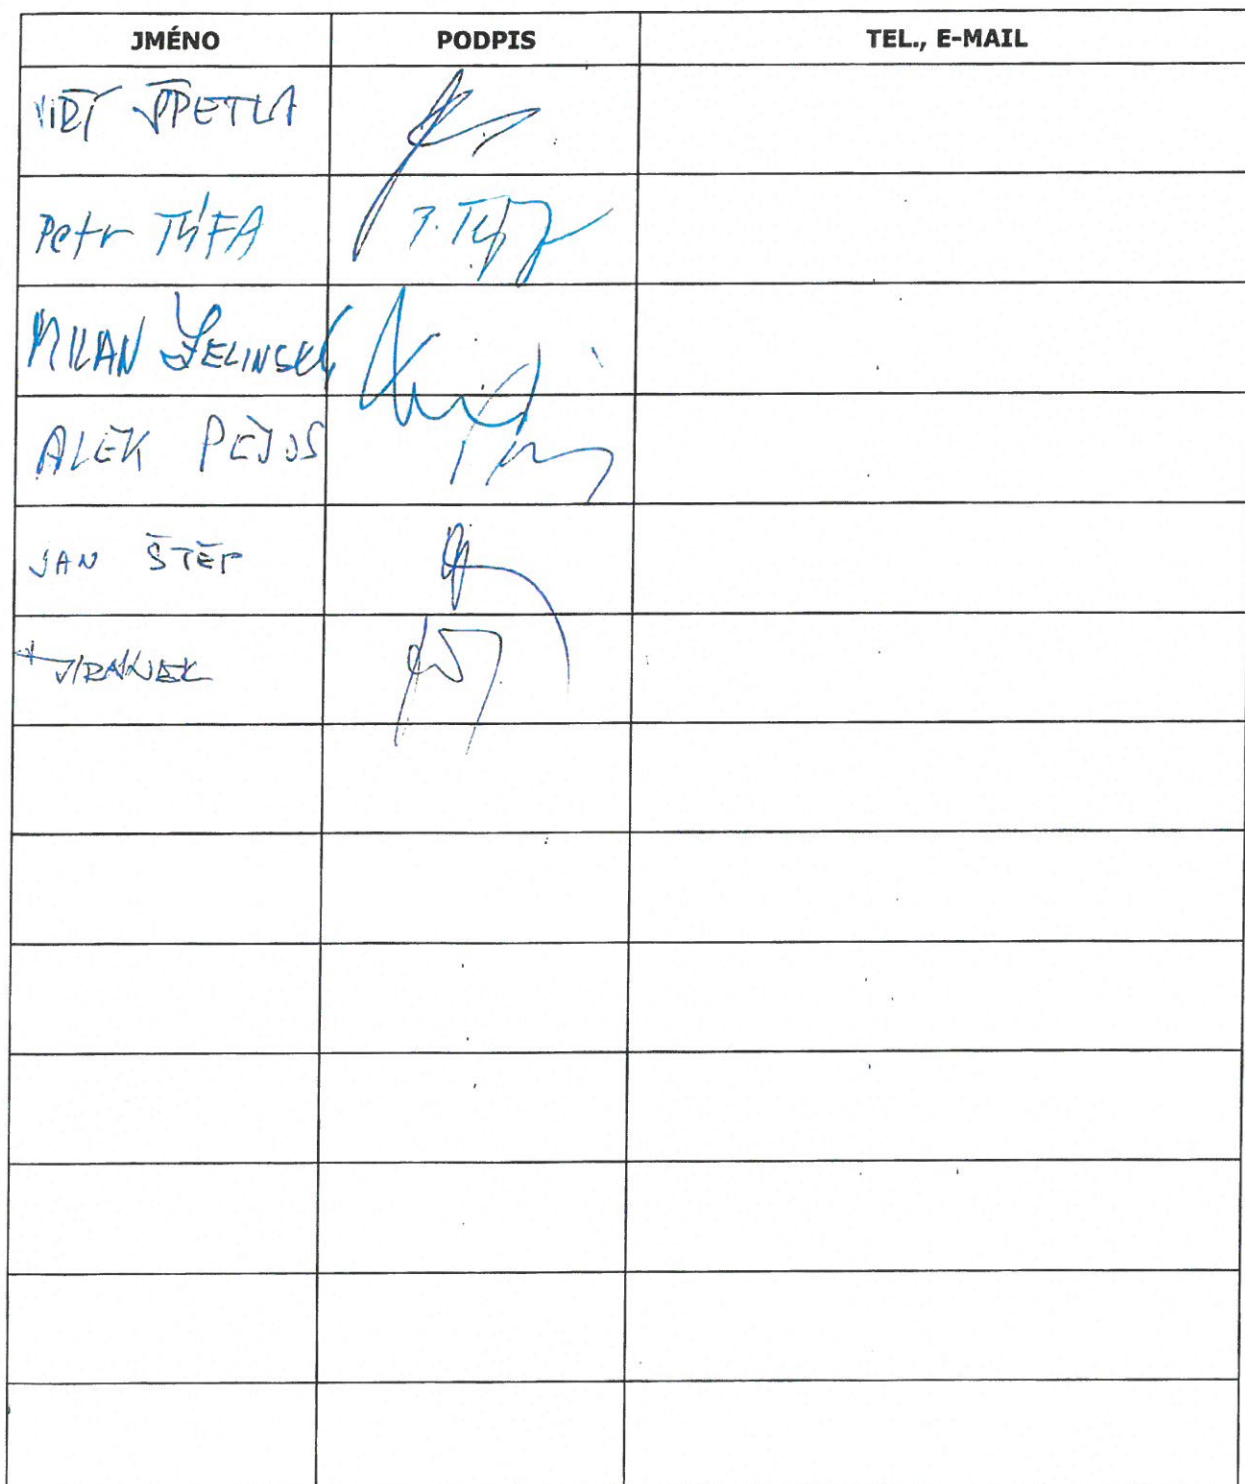 JMÉNO PODPIS TEL., E-MAIL
JIŘÍ ŠPETLA
Petr TÝFA P. Týf
MILAN ZELINSKÝ
ALEK PEJOS
JAN ŠTĚP
JIRÁNEK